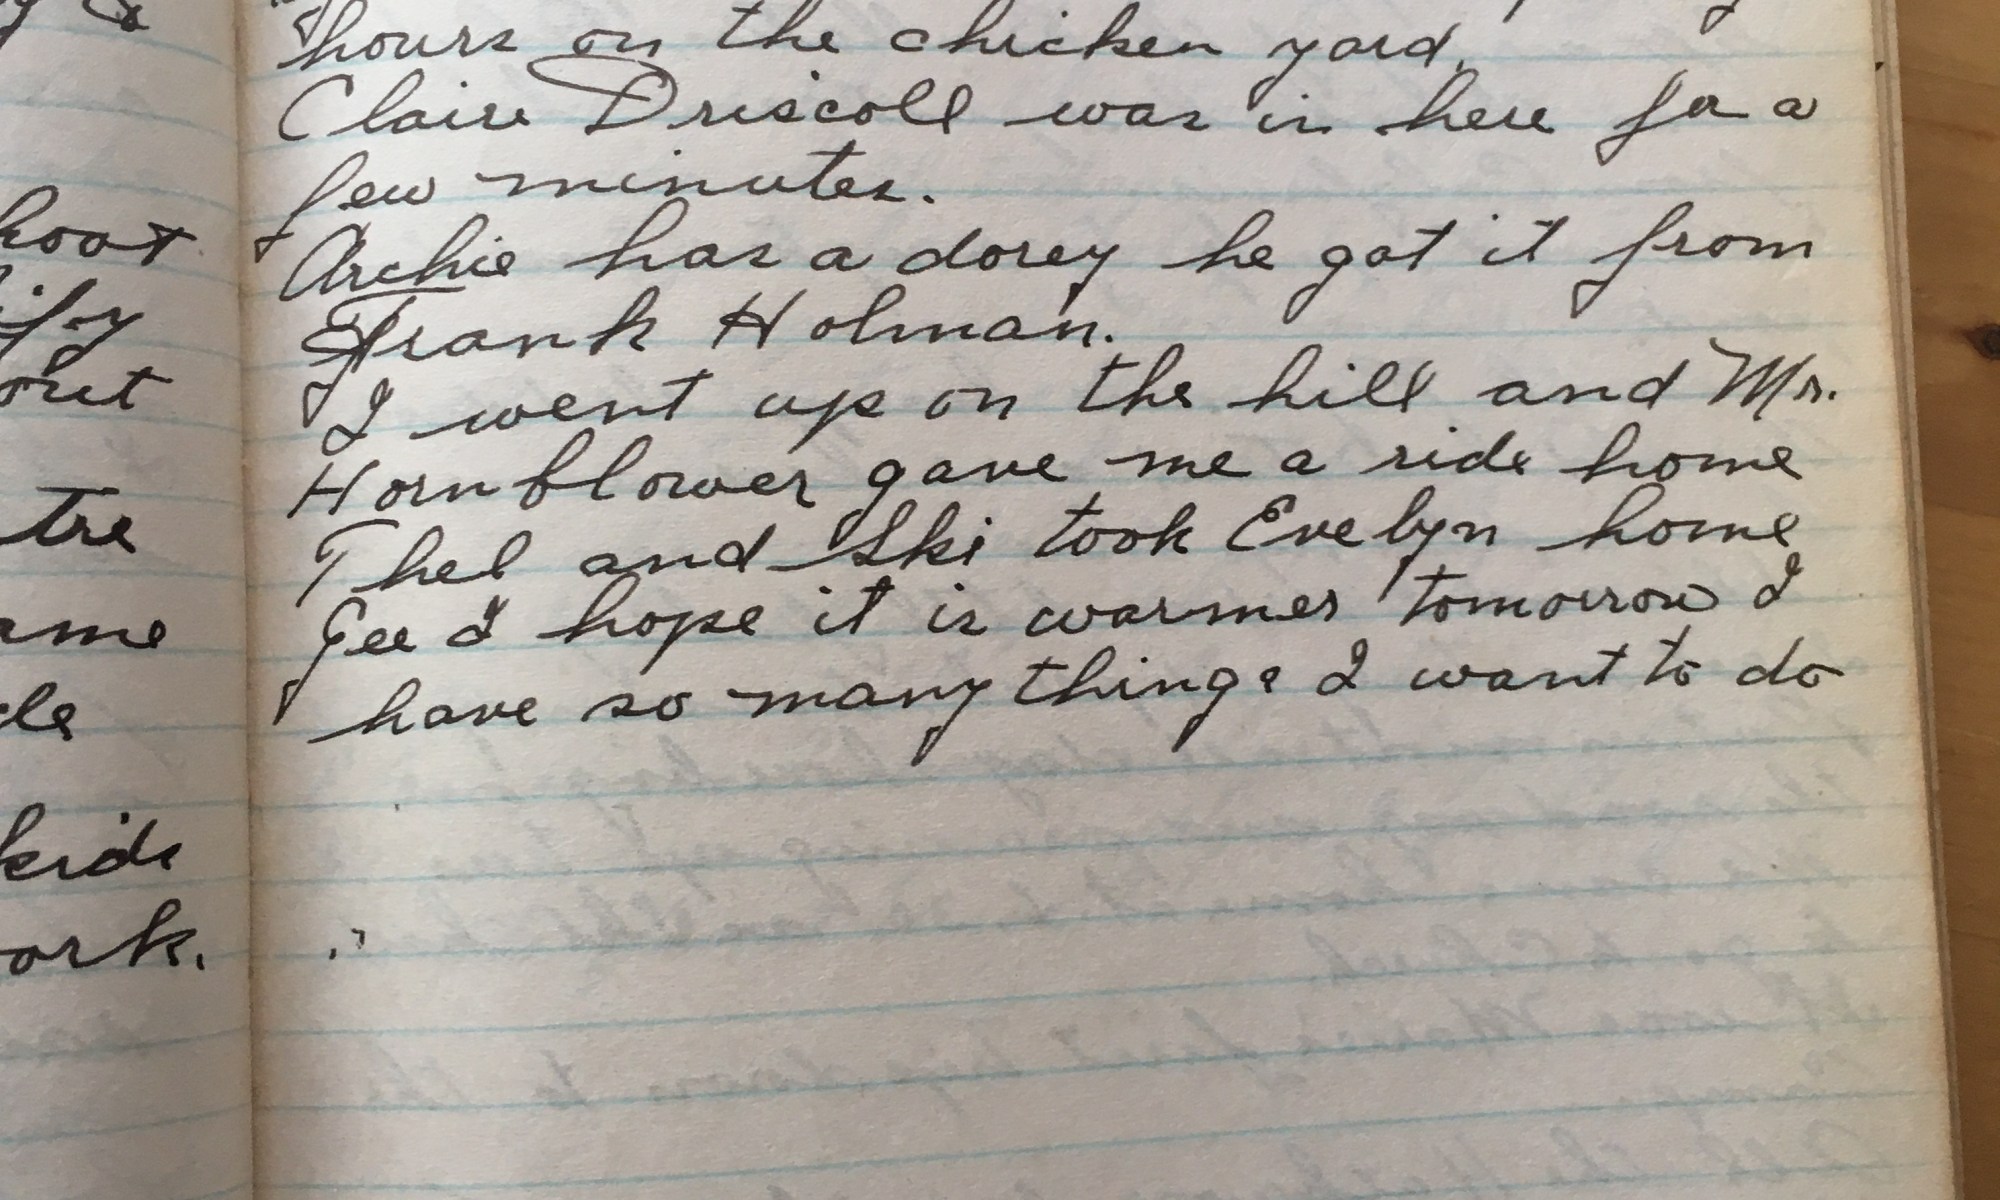 hours on the chicken yard.
Claire Driscoll was in here for a
few minutes.
Archie has a dorey he got it from
Frank Holman.
I went up on the hill and Mr.
Hornblower gave me a ride home
Thel and Ski took Evelyn home
Gee I hope it is warmer tomorrow I
have so many things I want to do